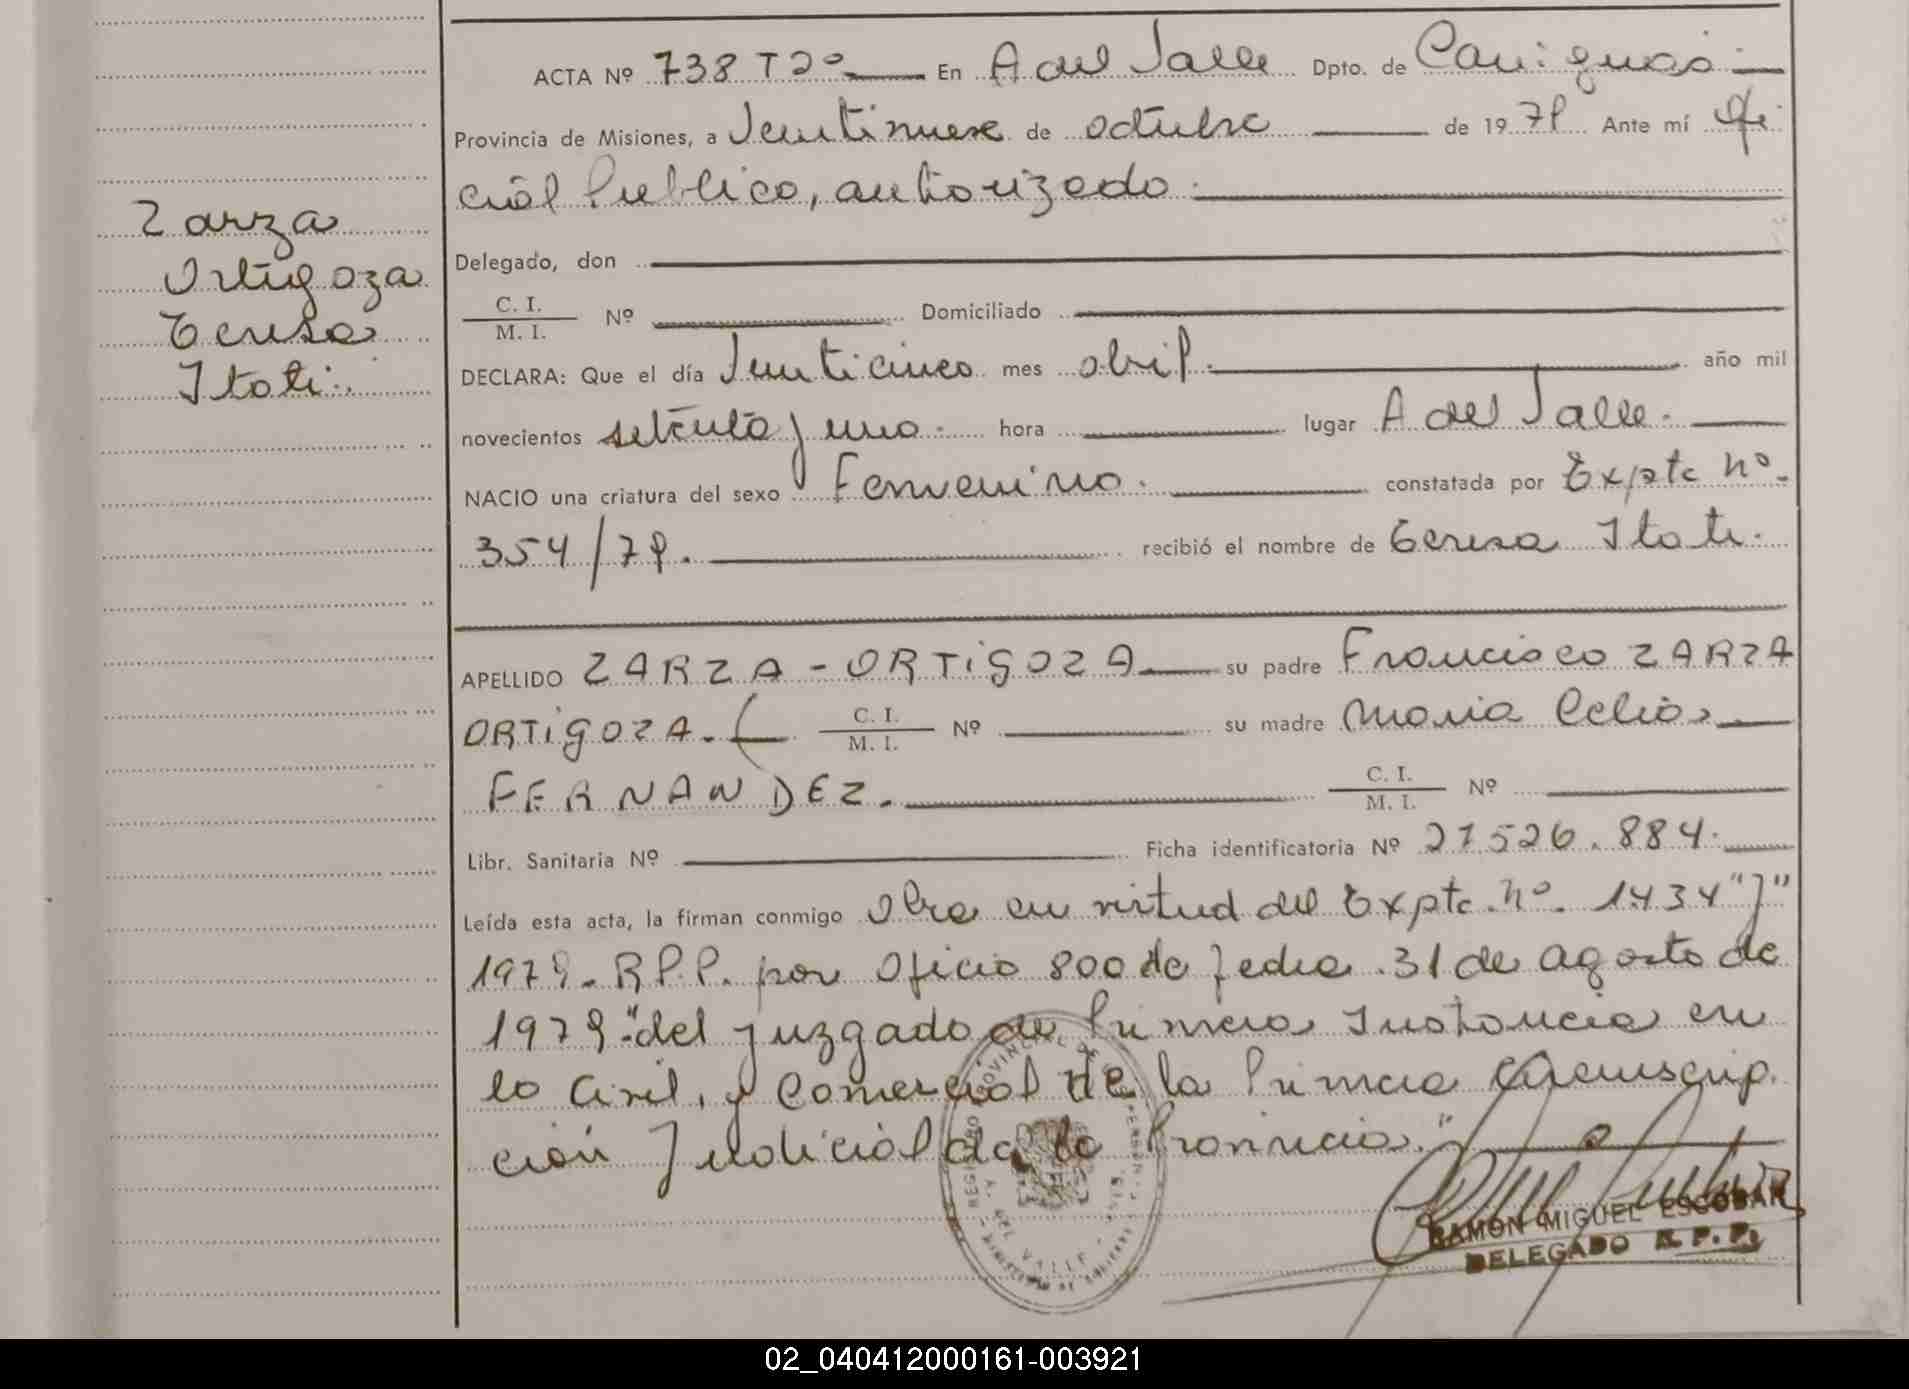 ACTA Nº 738 Tº 2º En A del Valle Dpto. de Cainguás
Provincia de Misiones, a veintinueve de octubre de 1979 Ante mí Ofi
cial Publico, autorizado.
Zarza
Ortigoza
Teresa
Itati.
Delegado, don
C. I.
M. I. Nº Domiciliado
DECLARA: Que el día veinticinco mes abril. año mil
novecientos setenta y uno. hora lugar A del Valle.
NACIO una criatura del sexo Femenino. constatada por Expte nº
354/79. recibió el nombre de Teresa Itati.
APELLIDO ZARZA - ORTIGOZA su padre Francisco ZARZA
ORTIGOZA. C. I.
M. I. Nº su madre Maria Celia
FERNANDEZ. C. I.
M. I. Nº
Libr. Sanitaria Nº Ficha identificatoria Nº 27526.884.
Leída esta acta, la firman conmigo Obra en virtud del Expte. nº. 1434 "J"
1979. R.P.P. por Oficio 800 de fecha 31 de agosto de
1979 "del juzgado de Primera Instancia en
lo Civil, y Comercial de la Primera Circunscrip.
ción Judicial de la Provincia."
RAMON MIGUEL ESCOBAR
DELEGADO R. P. P.
02_040412000161-003921